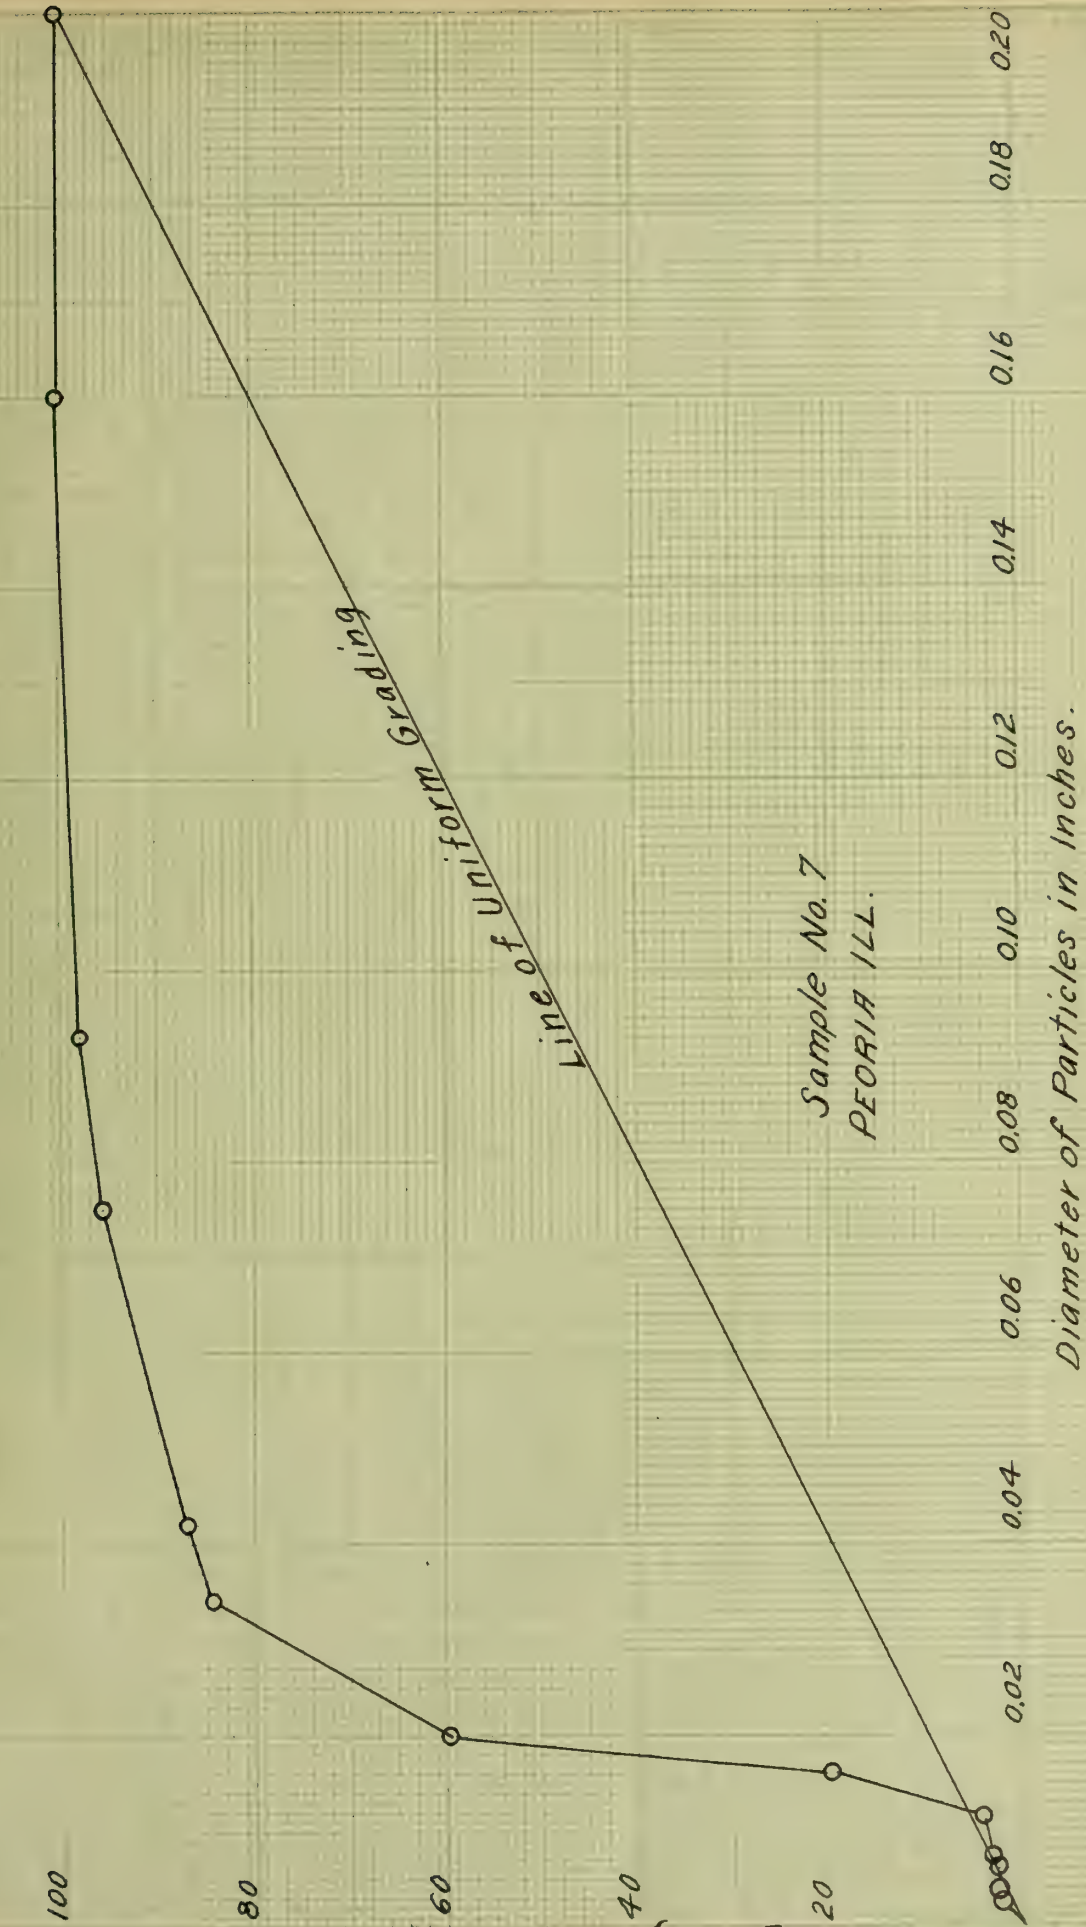 100
80
60
40
20
Line of Uniform Grading
Sample No. 7
PEORIA ILL.
0.02
0.04
0.06
0.08
0.10
0.12
0.14
0.16
0.18
0.20
Diameter of Particles in Inches.